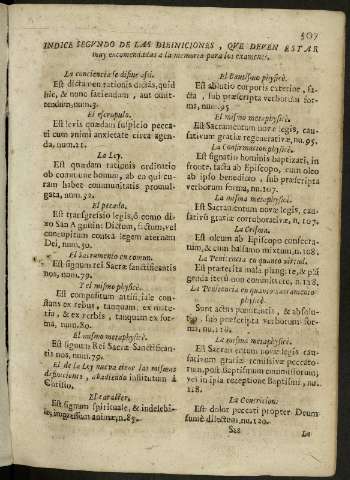 507
INDICE SEGVNDO DE LAS DIFINICIONES, QVE DEVEN ESTAR
muy encomendadas a la memoria para los examenes.
La conciencia se difine assi.
Est dictamen rationis dictās, quid
hic, & nunc faciendum, aut omit-
tendum, num.3.
El escrupulo.
Est levis quædam suspicio pecca-
ti cum animi anxietate circa agen-
da, num.21.
La Ley.
Est quædam rationis ordinatio
ob commune bonum, ab eo qui cu-
ram habet communitatis promul-
gata, num.32.
El pecado.
Est transgressio legis, ò como di-
xo San Agustin: Dictum, factum, vel
concupitum contra legem æternam
Dei, num.50.
El Sacramento en comun.
Est signum rei Sacræ sanctificantis
nos, num.79.
Y el mismo physicè.
Est compositum artificiale con-
stans ex rebus, tanquam ex mate-
ria, & ex verbis, tanquam ex for-
ma, num.80.
El mismo metaphysicè.
Est signum Rei Sacræ Sanctifican-
tis nos, num.79.
El de la Ley nueva tiene las mismas
difiniciones, añadiendo institutum à
Christo.
El caracter.
Est signum spirituale, & indelebi-
le, impressum animæ, n.85.
El Bautismo physicè.
Est ablutio corporis exterior, fa-
cta, sub præscripta verborum for-
ma, num.95
El mismo metaphysicè.
Est Sacramentum novæ legis, cau-
sativum gratiæ regenerativæ, nu.95.
La Confirmacion physicè.
Est signatio hominis baptizati, in
fronte, facta ab Episcopo, cum oleo
ab ipso benedicto, sub præscripta
verborum forma, nu.107.
La misma metaphysicè.
Est Sacramentum novæ legis, cau-
sativū gratiæ corroborativæ, n.107.
La Crisma.
Est oleum ab Episcopo consecra-
tum, & cum balsamo mixtum, n.108.
La Penitencia en quanto virtud.
Est præterita mala plangere, & plā-
genda iterū non committere, n.118.
La Penitencia en quanto Sacramento
physicè.
Sunt actus pænitentis, & absolu-
tio, sub præscripta verborum for-
ma, nu.118.
La misma metaphysicè.
Est Sacramentum novæ legis cau-
sativum gratiæ remissivæ peccato-
rum, post Baptismum commissorum,
vel in ipsa receptione Baptismi, nu.
118.
La Contricion:
Est dolor peccati propter Deum
summè dilectum, nu.120.
Sss
La